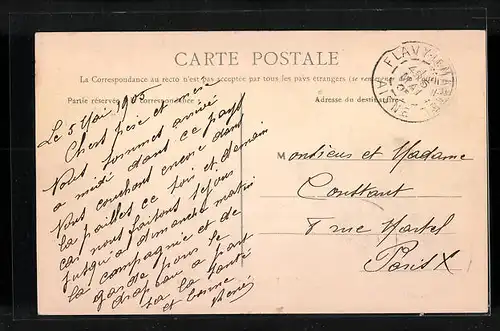 CARTE POSTALE
La Correspondance au recto n'est pas acceptée par tous les pays étrangers (se
Partie réservée Correspondance
Adresse du destinataire
FLAVY
AISNE
Le 5 Mai 1905
Chers père et mère
Nous sommes arrivé
a midi dans ce pays
Nous couchons encore dans
la pailles ce soir et demain
car nous faisons séjour
jusqu'a dimanche matin
la compagnie et de
garde pour le
drapeau a part
sa la santé
et bonne
René
Monsieur et Madame
Constant
8 rue Martel
Paris X